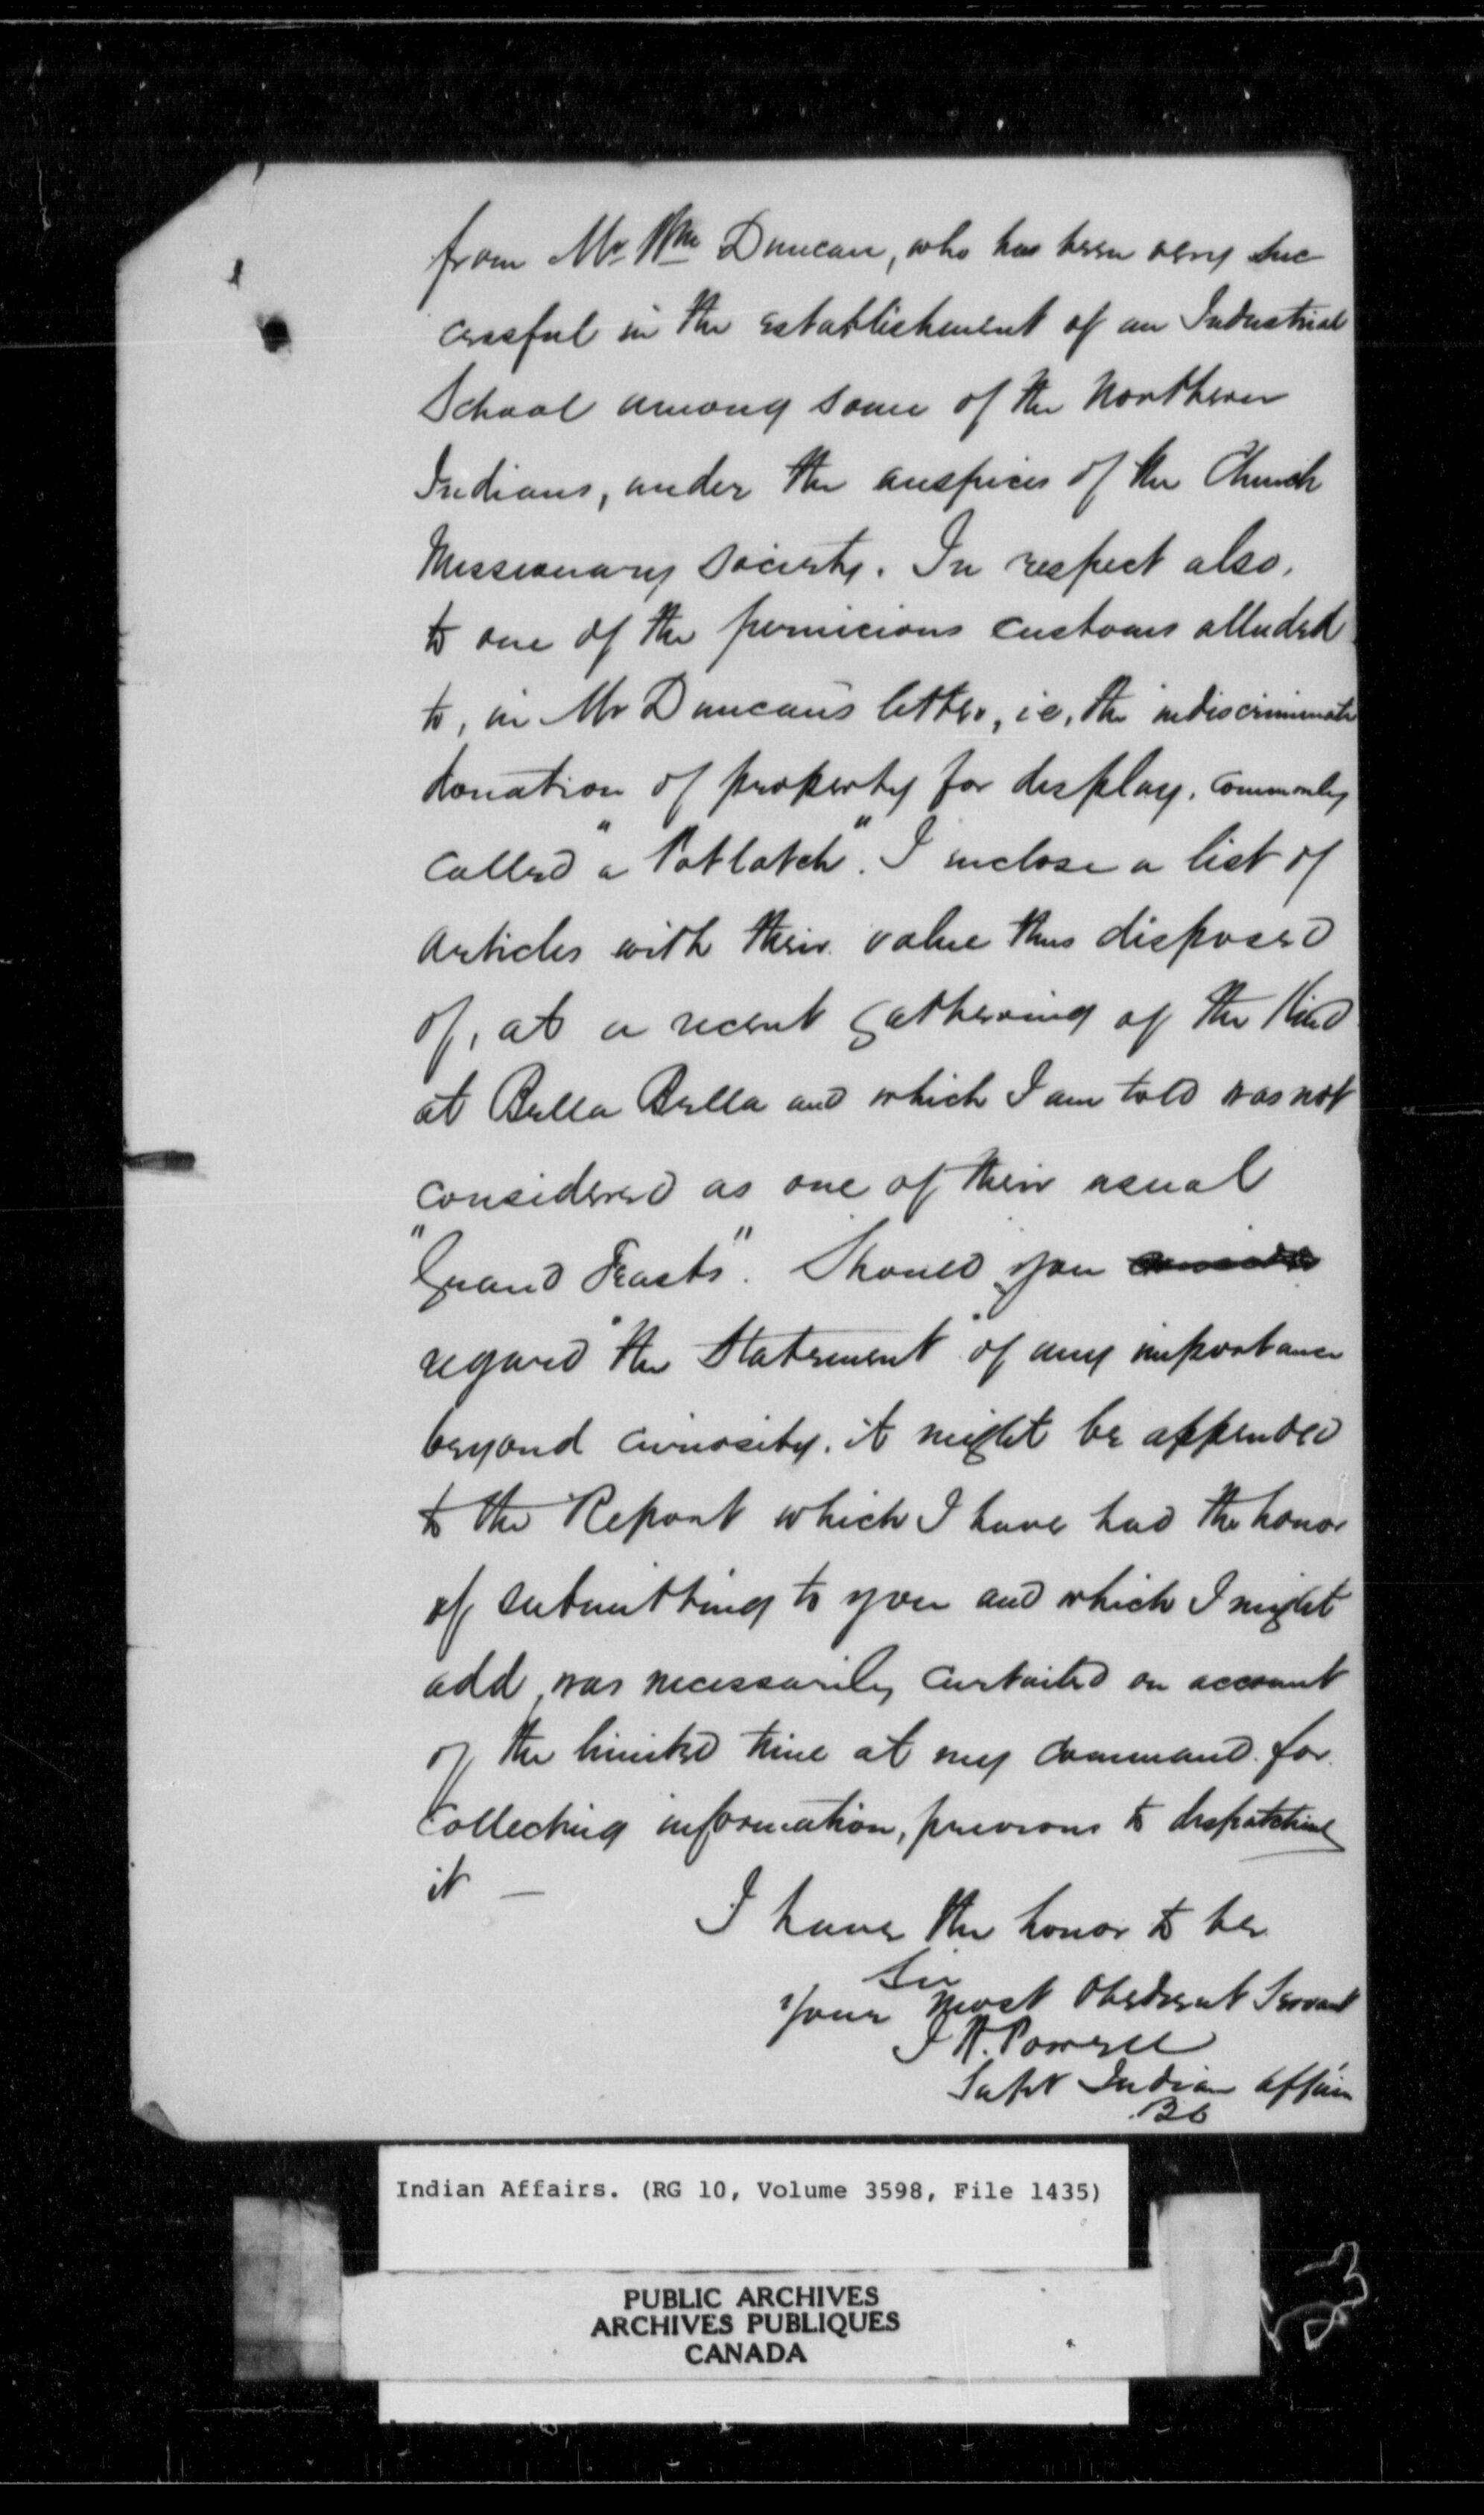 from Mr Wm Duncan, who has been very suc
cessful in the establishment of an Industrial
School among some of the Northern
Indians, under the auspices of the Church
Missionary Society. In respect also,
to one of the pernicious customs alluded
to, in Mr Duncan's letter, ie, the indiscriminate
donation of property for display, commonly
called "a Potlatch". I inclose a list of
articles with their value thus disposed
of, at a recent gathering of the Kind
at Bella Bella and which I am told was not
considered as one of their usual
"Grand Feasts". Should you
regard "the Statement" of any importance
beyond curiosity, it might be appended
to the Report which I have had the honor
of submitting to you and which I might
add, was necessarily curtailed on account
of the limited time at my command for
collecting information, previous to despatching
it —
I have the honor to be
Sir
Your most Obedient Servant
I W. Powell
Supt Indian Affairs
BC
Indian Affairs. (RG 10, Volume 3598, File 1435)
PUBLIC ARCHIVES
ARCHIVES PUBLIQUES
CANADA